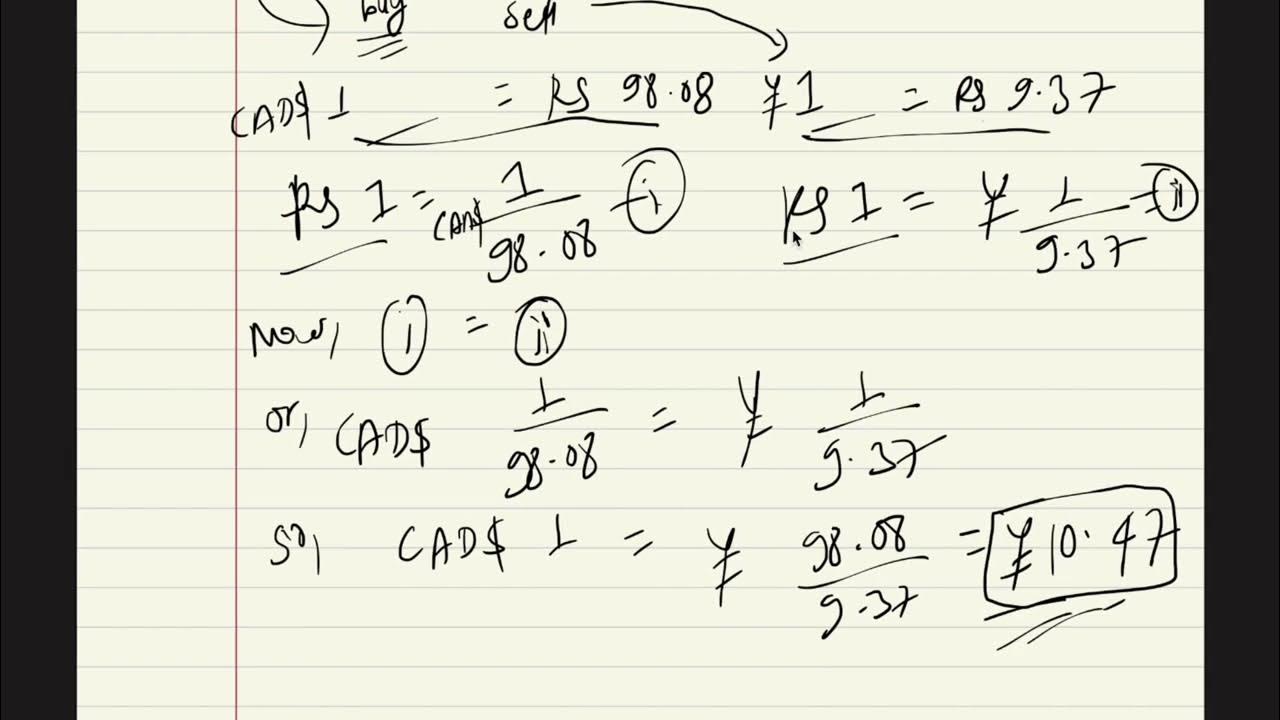 buy sell
CAD$ 1 = RS 98.08 ¥1 = RS 9.37
RS 1 = CAD$ 1/98.08 - (i) RS 1 = ¥ 1/9.37 - (ii)
Now, (i) = (ii)
or, CAD$ 1/98.08 = ¥ 1/9.37
So, CAD$ 1 = ¥ 98.08/9.37 = ¥10.47